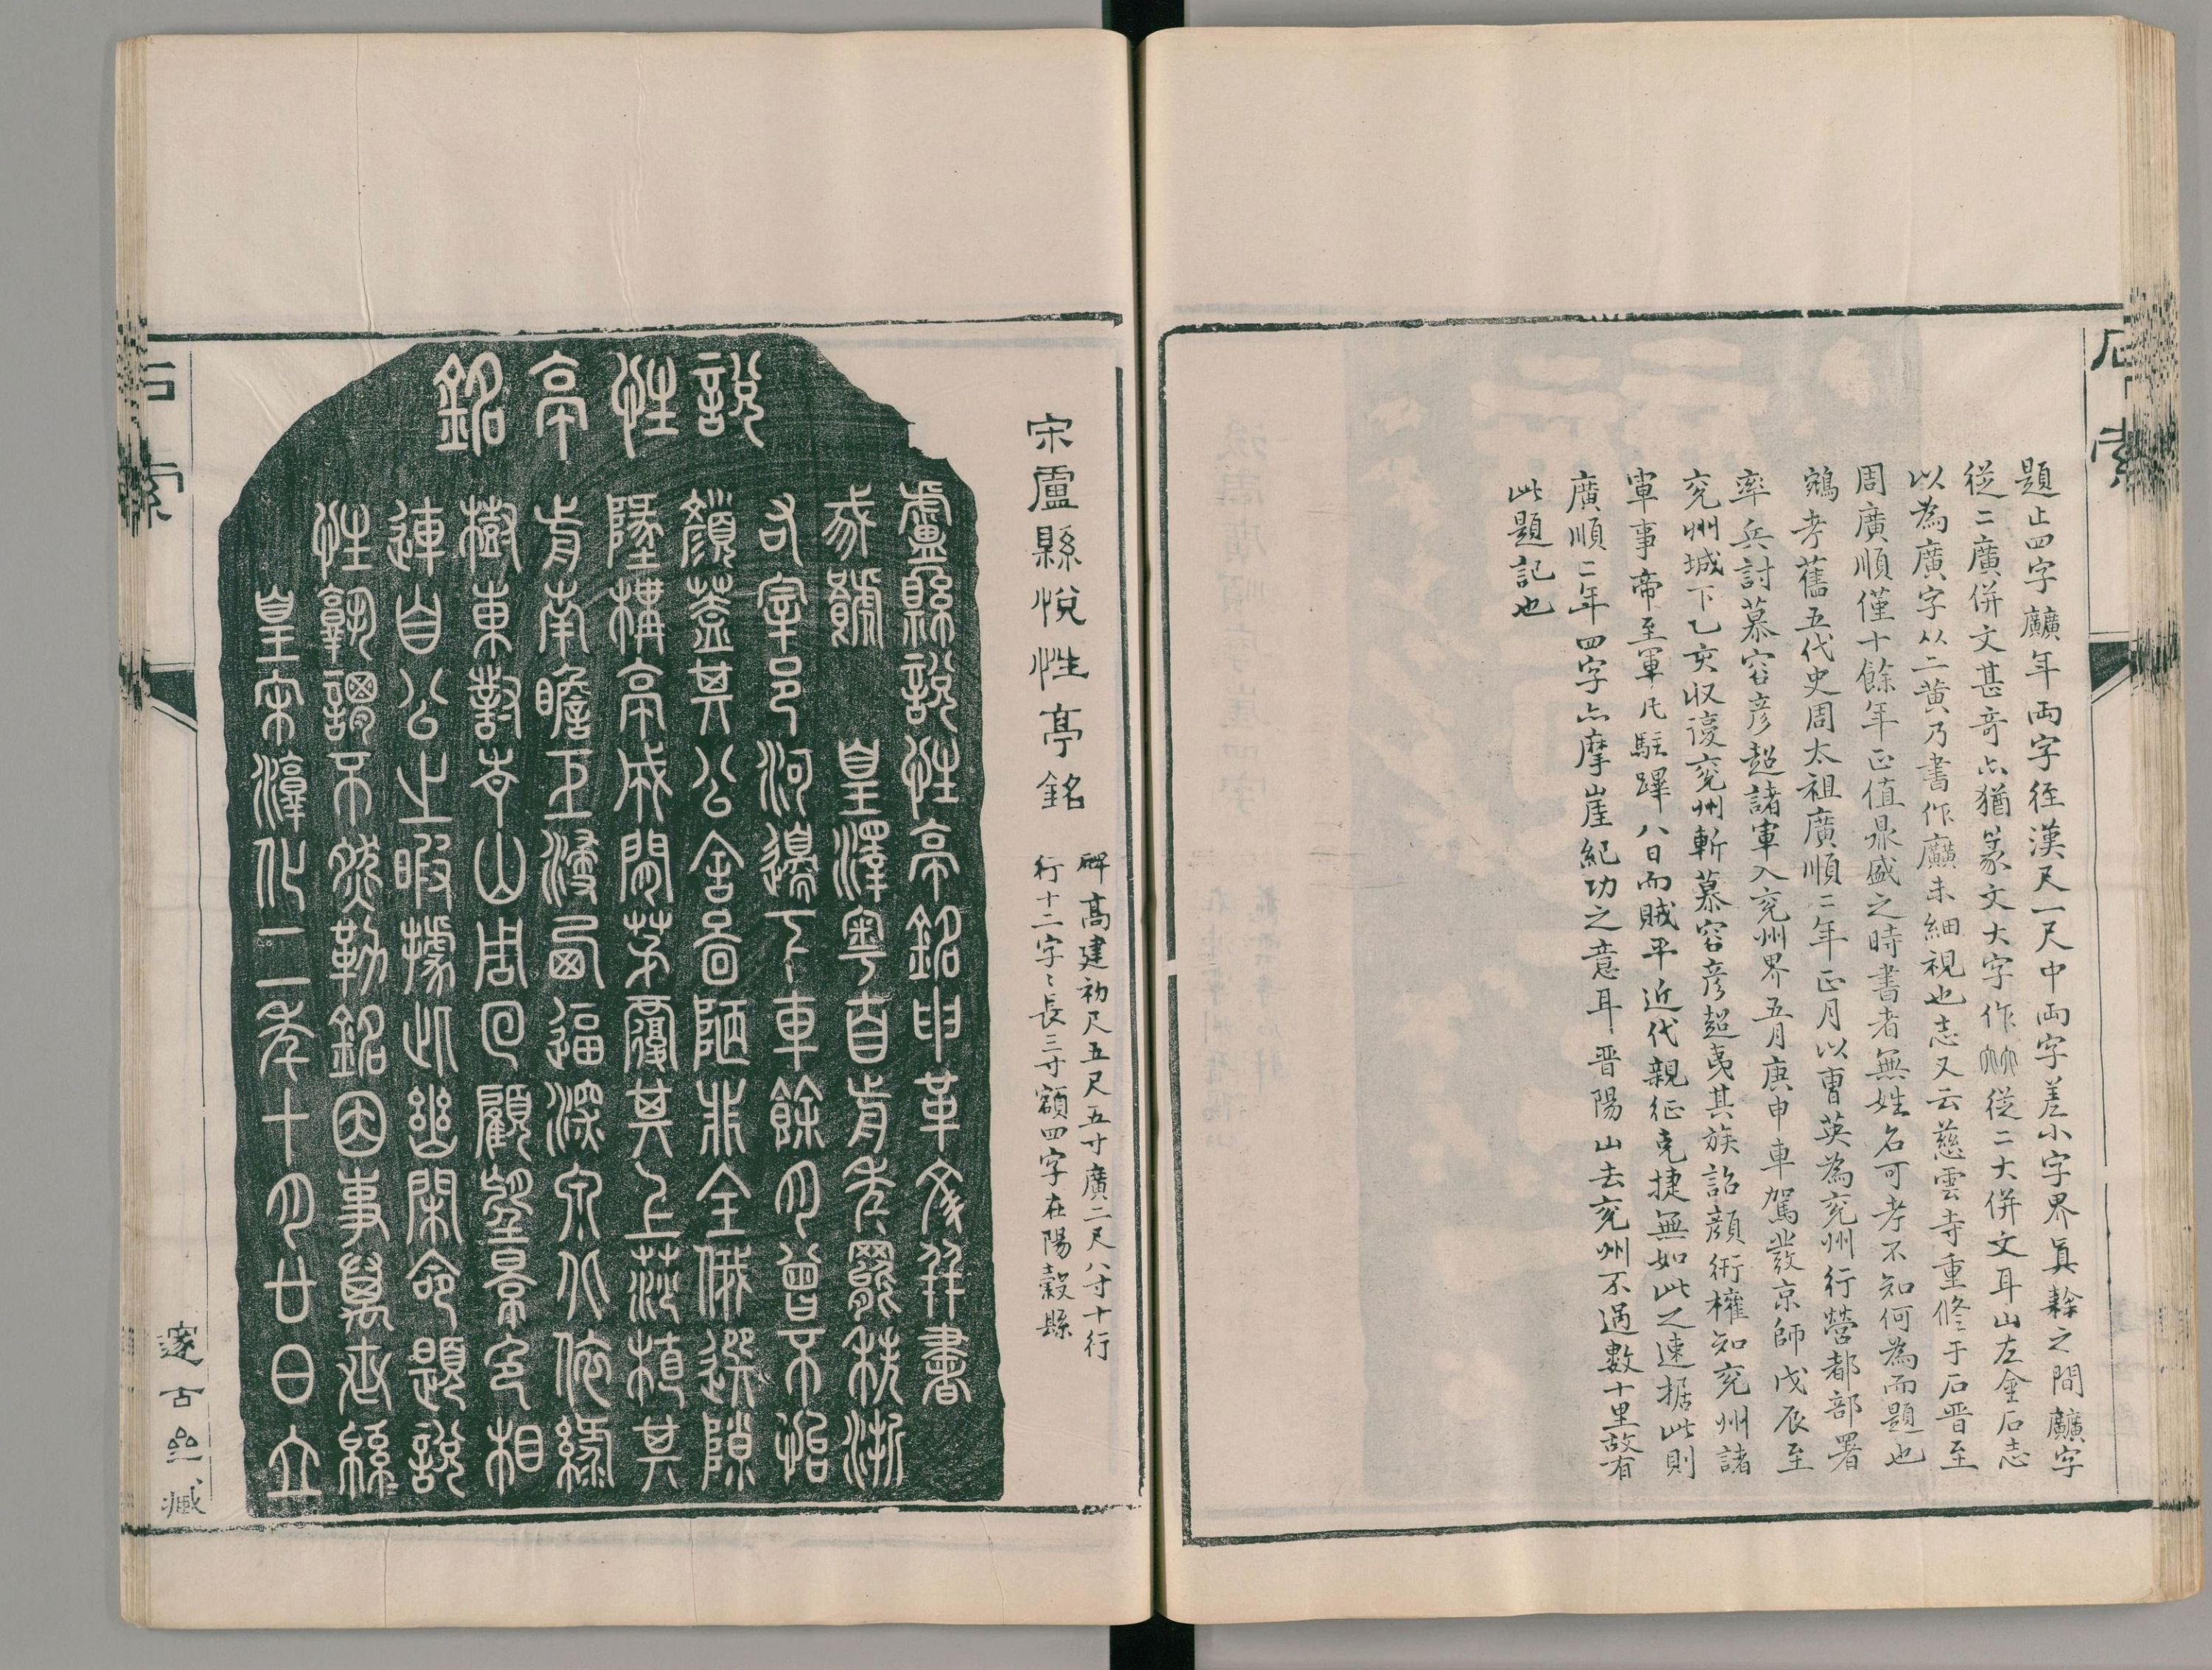 石索
題止四字年兩字徑漢尺一尺中兩字差小字界眞隸之間字
從二廣併文甚竒亦猶篆文大字作從二大併文耳山左金石志
以為廣字从二黄乃書作未細視也志又云慈雲寺重修于石晋至
周廣順僅十餘年正值鼎盛之時書者無姓名可考不知何為而題也
鵷考舊五代史周太祖廣順二年正月以曹英為兖州行營都部署
率兵討慕容彦超諸軍入兖州界五月庚申車駕發京師戊辰至
兖州城下乙亥収復兖州斬慕容彦超夷其族詔顔衎權知兖州諸
軍事帝至軍凡駐蹕八日而賊平近代親征克捷無如此之速据此則
廣順二年四字亦摩崖紀功之意耳晋陽山去兖州不過數十里故有
此題記也
宋盧縣悅性亭銘
碑高建初尺五尺五寸廣二尺八寸十行
行十二字〻長三寸額四字在陽穀縣
說性亭銘
盧縣說性亭銘申革文并書
號皇澤粤直省秀罷秩浙
右宰邑河邊下車餘月曾不怡
顏蓋其公舍啚陋非全俄選隙
構亭成茅覆其上莎植其
前南瞻逼深泉水依緑
樹東對古山周回顧望景色相
連自公止暇據此幽閑命題說
性孰謂不然勒銘因事萬世緜〻
皇宋淳化二年十月廿日立
石索
邃古藏